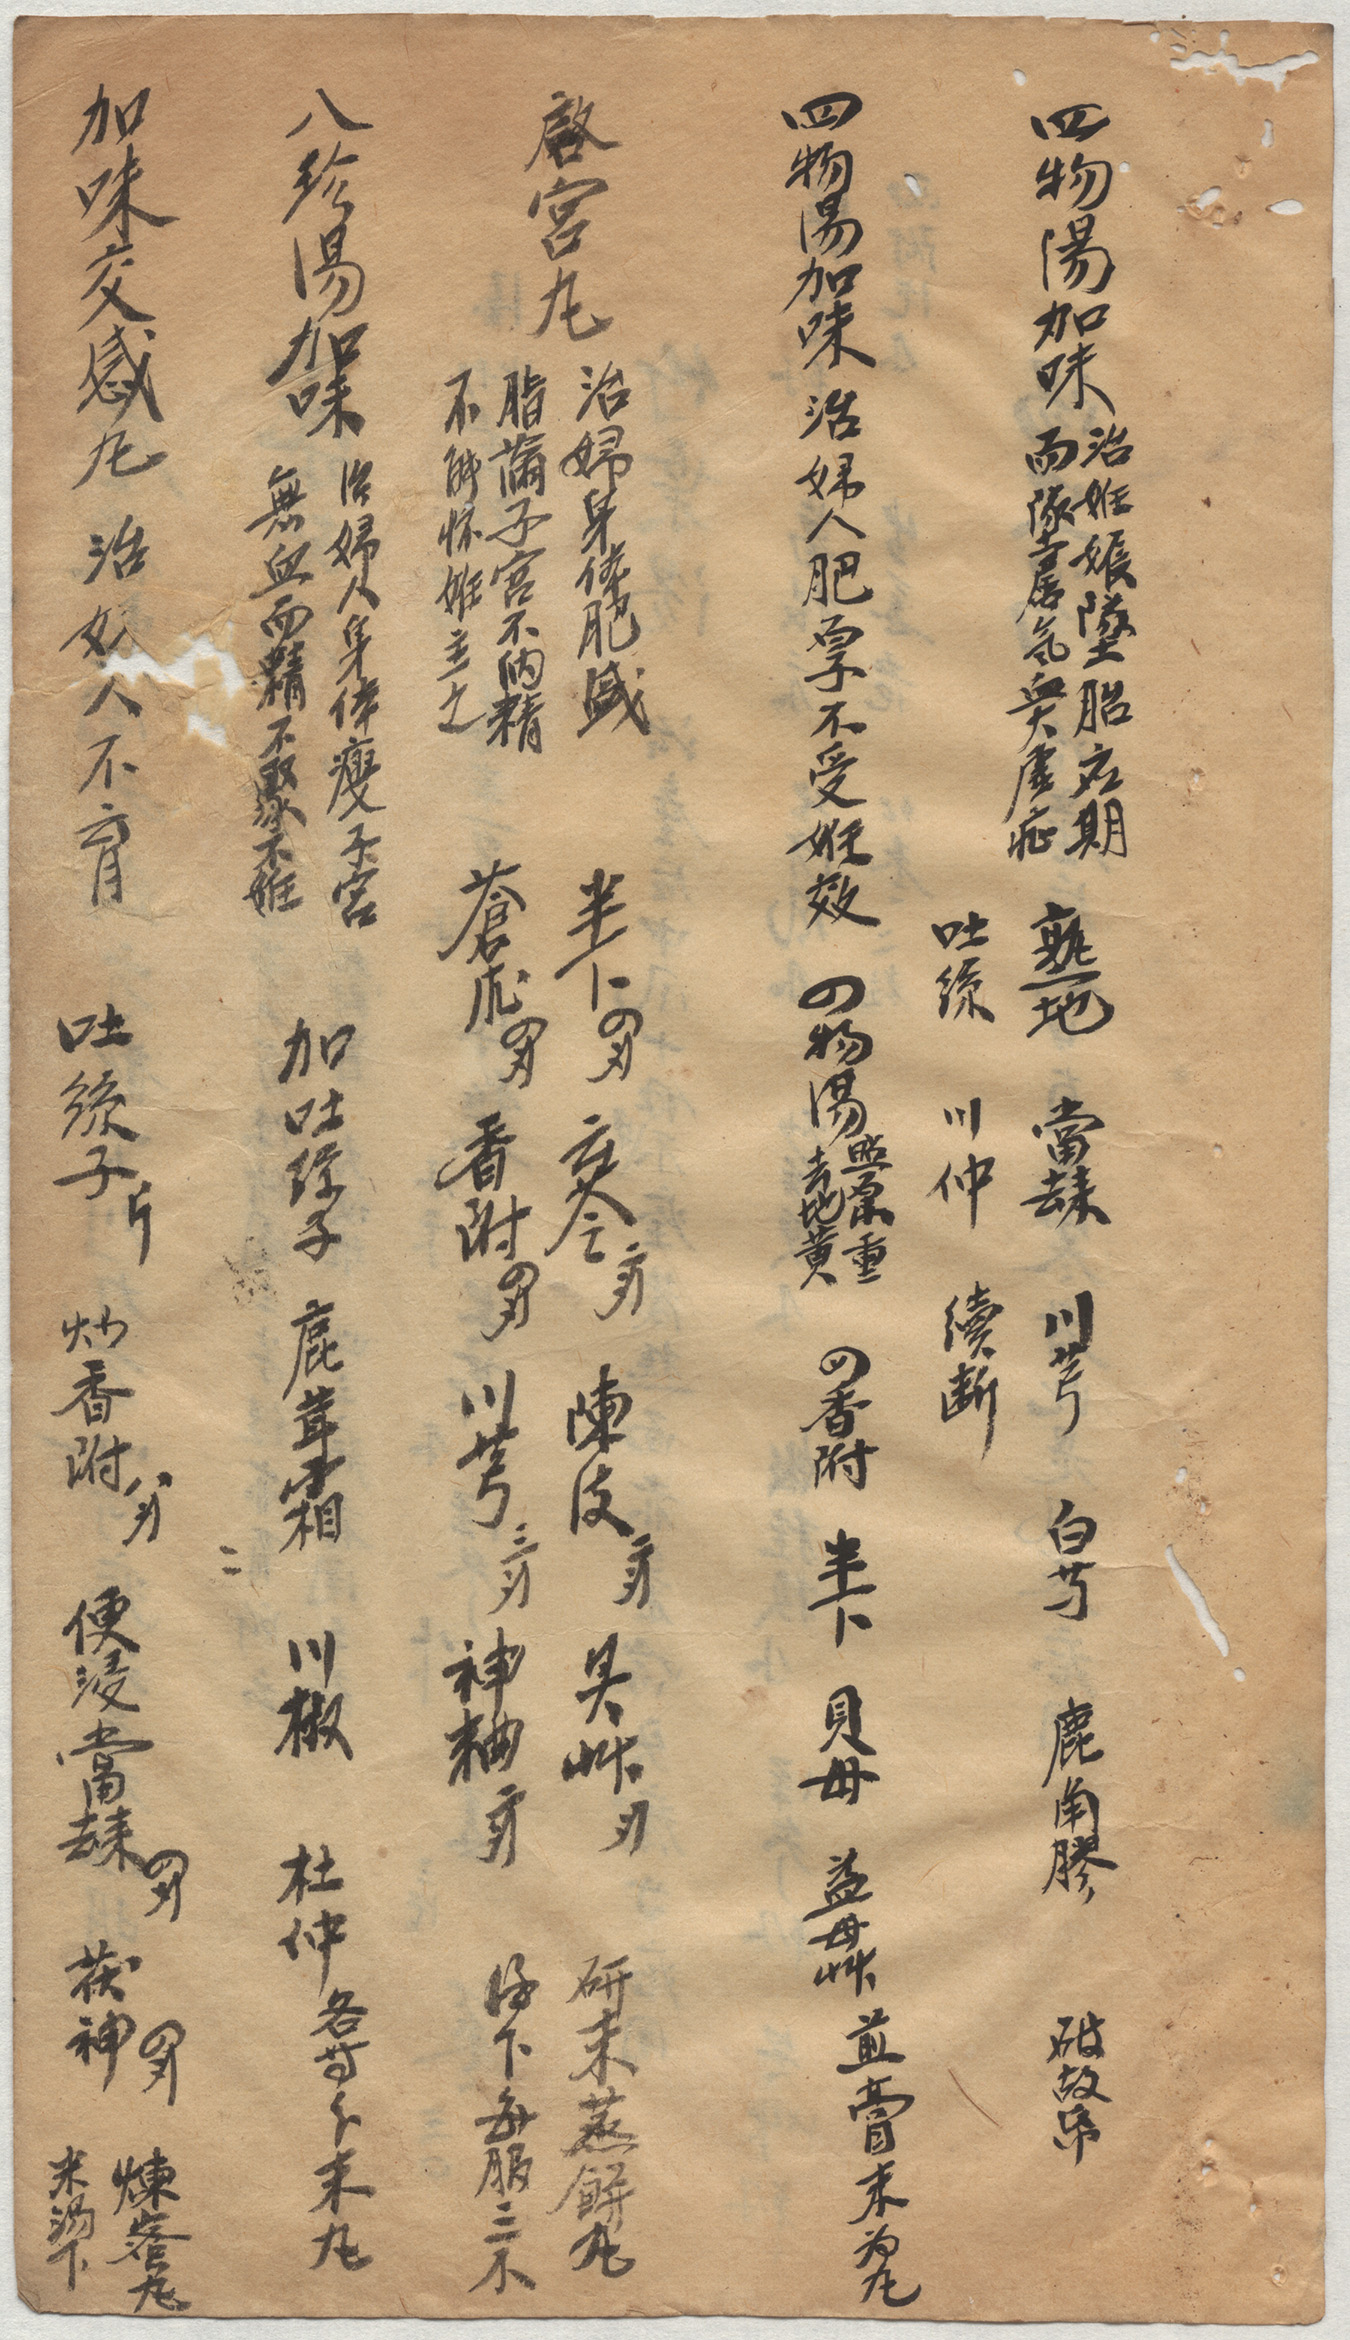 四物湯加味
治姙娠墜胎应期
而墜屬氣與血虛症
熟地 當歸 川芎 白芍 鹿角膠 破故帋
吐絲 川仲 續断
四物湯加味 治婦人肥厚不受姙效 四物湯
照原重
去地黃
四香附 半下 貝母 益母艸 煎膏末为丸
啓宮丸
治婦身体肥盛
脂滿子宮不納精
不能怀姙主之
半下四刄 茯令二刄 陳皮二刄 具艸刄 研末蒸餅丸
蒼朮四刄 香附四刄 川芎三刄 神粬二刄 湯下每服三不
八珍湯加味
治婦人身体瘦子宮
無血而精不聚不姙
加吐絲子 鹿茸霜 川椒 杜仲 各等分末丸
加味交感丸 治婦人不育 吐絲子斤 炒香附八刄 便浸當歸四刄 茯神四刄
煉蜜丸
米湯下